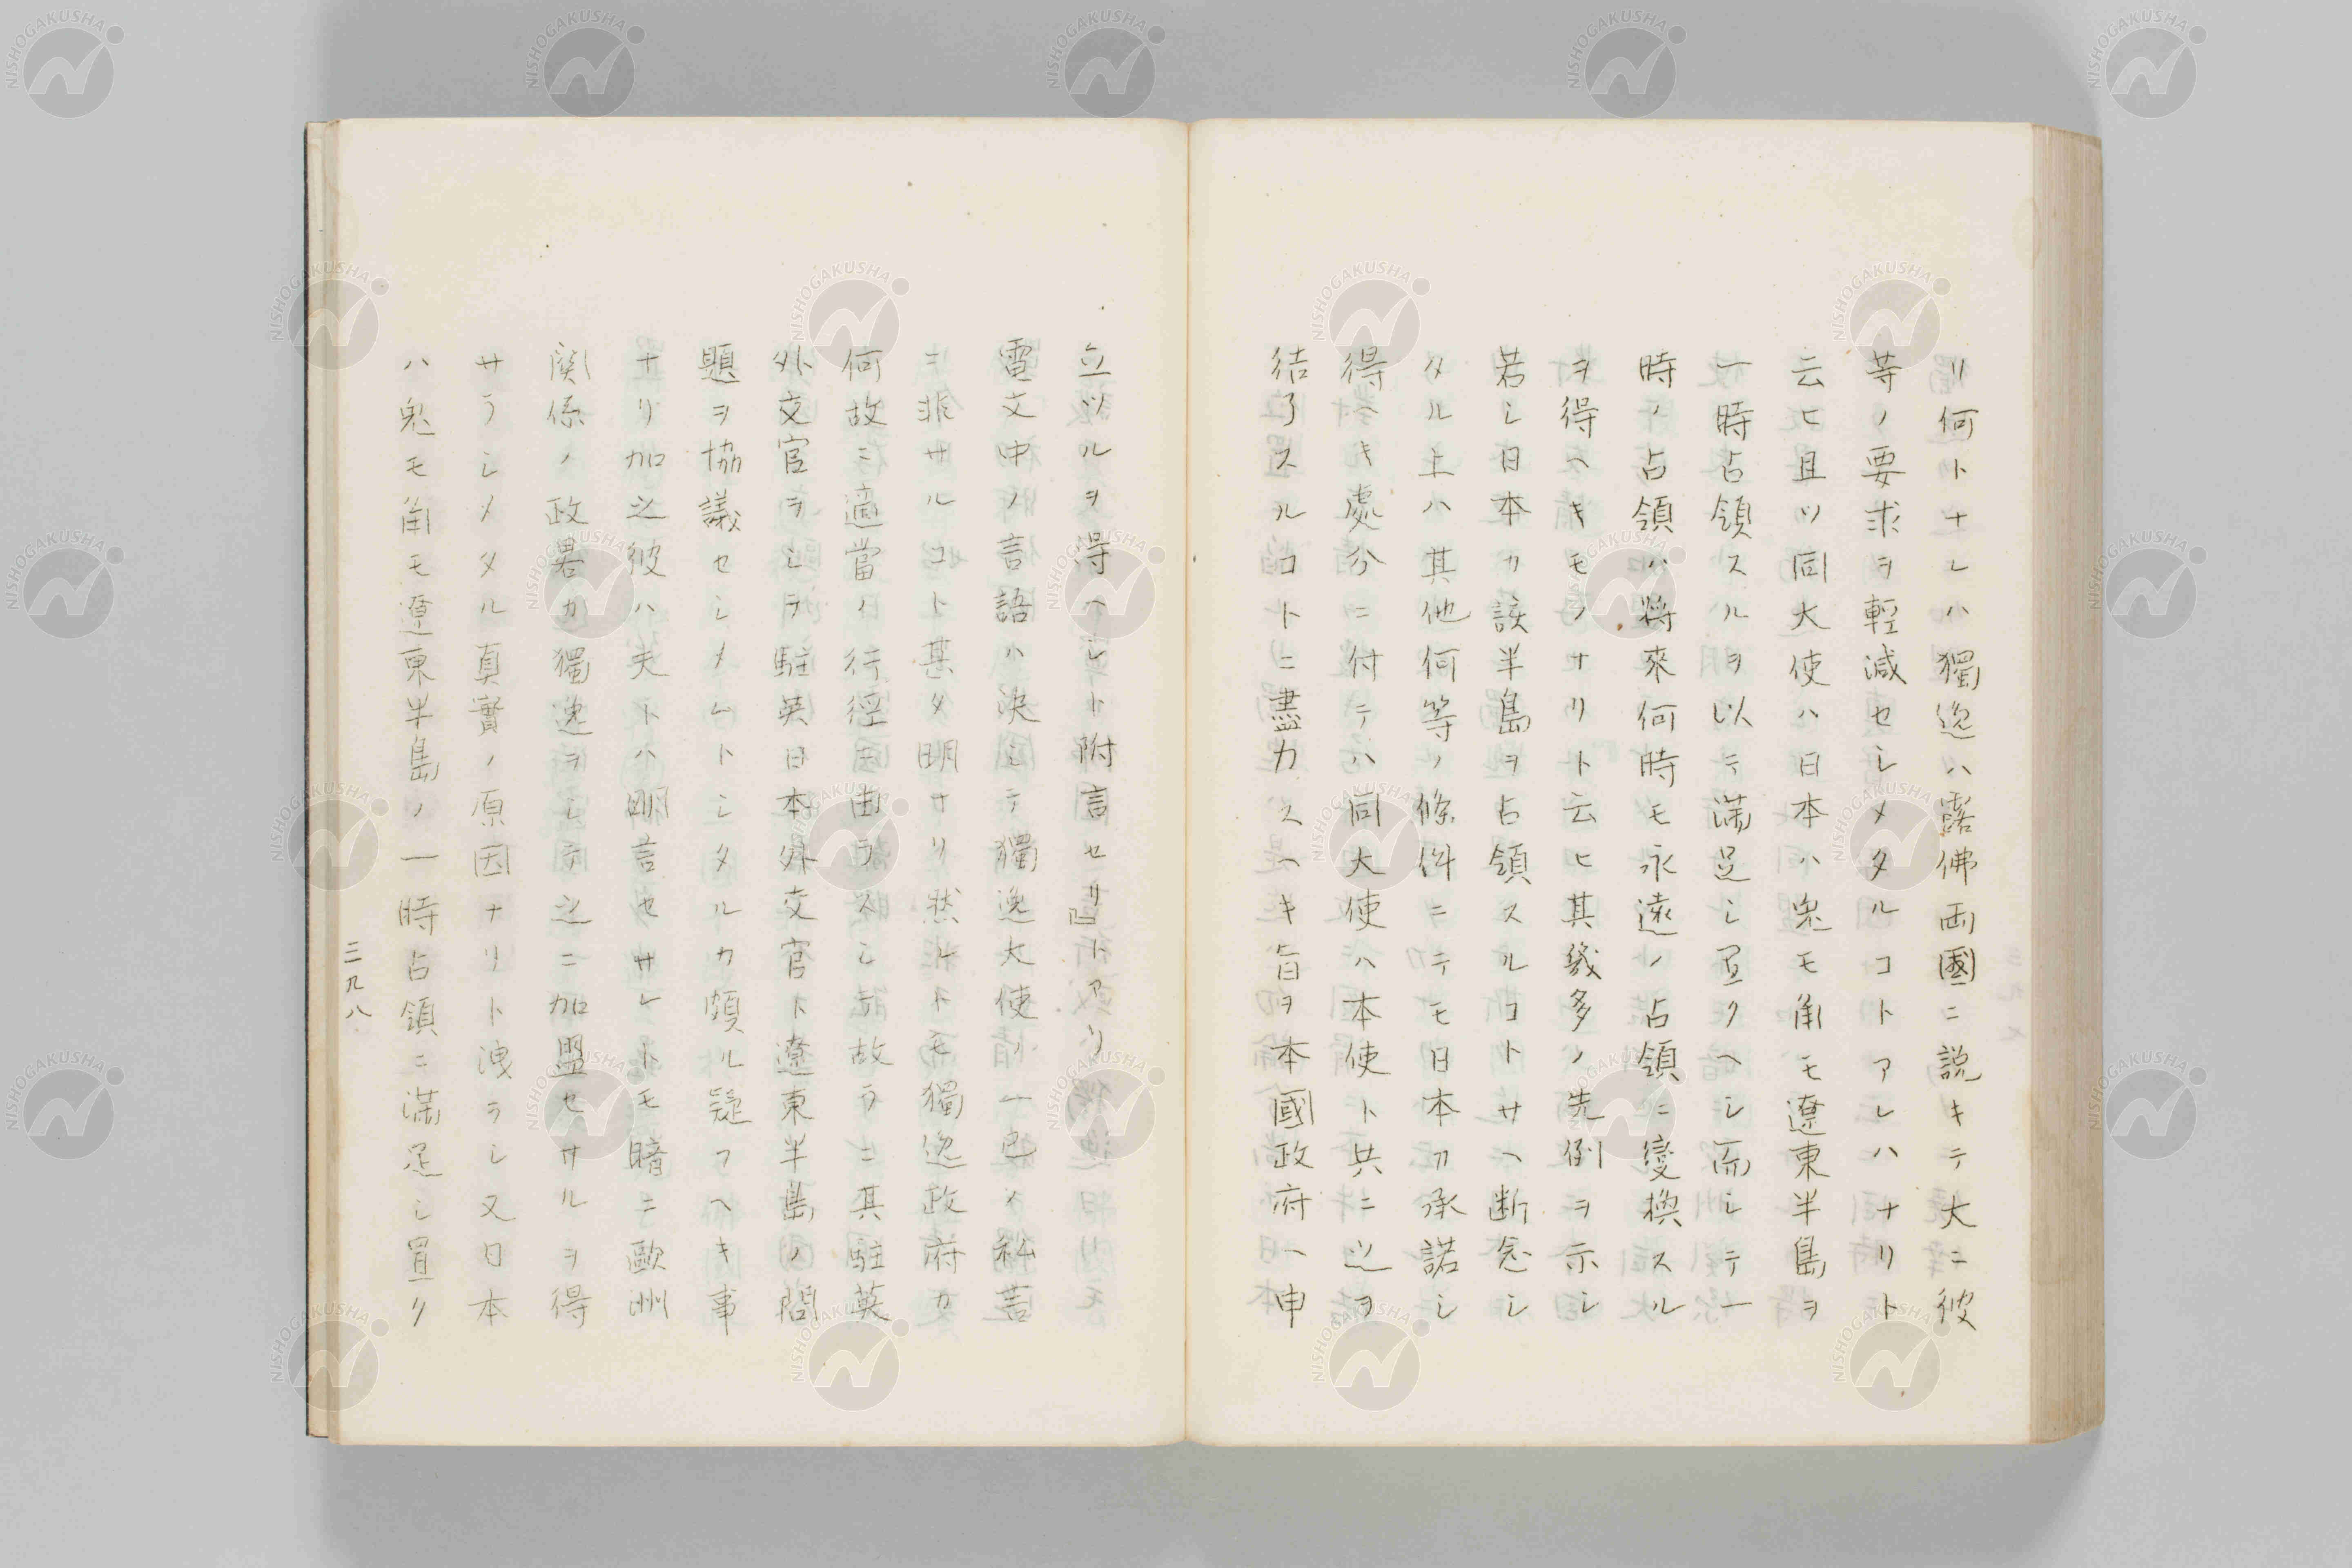 リ何トナレハ獨逸ハ露佛両國ニ説キテ大ニ彼
等ノ要求ヲ輕減セシメタルコトアレハナリト
云ヒ且ツ同大使ハ日本ハ兎モ角モ遼東半島ヲ
一時占領スルヲ以テ満足シ置クヘシ而シテ一
時ノ占領ハ將來何時モ永遠ノ占領ニ變換スル
ヲ得ヘキモノサリト云ヒ其幾多ノ先例ヲ示シ
若シ日本カ該半島ヲ占領スルコトサヘ断念シ
タル上ハ其他何等ノ條件ニテモ日本カ承諾シ
得ヘキ處分ニ付テハ同大使ハ本使ト共ニ之ヲ
結了スルコトニ盡力スヘキ旨ヲ本國政府ヘ申
立ツルヲ得ヘシト附言セリ』トアリ
電文中ノ言語ハ決シテ獨逸大使ノ一己ノ私言
ニ非サルコト甚タ明サリ然ルトモ獨逸政府カ
何故ニ適當ノ行徑ニ由ラスシテ故ラニ其駐英
外交官ヲシテ駐英日本外交官ト遼東半島ノ問
題ヲ協議セシメムトシタルカ頗ル疑フヘキ事
ナリ加之彼ハ夫トハ明言セサレトモ暗ニ歐洲
関係ノ政畧カ獨逸ヲシテ之ニ加盟セサルヲ得
サラシメタル真實ノ原因ナリト洩ラシ又日本
ハ兎モ角モ遼東半島ノ一時占領ニ満足シ置ク
三九八
NISHOGAKUSHA